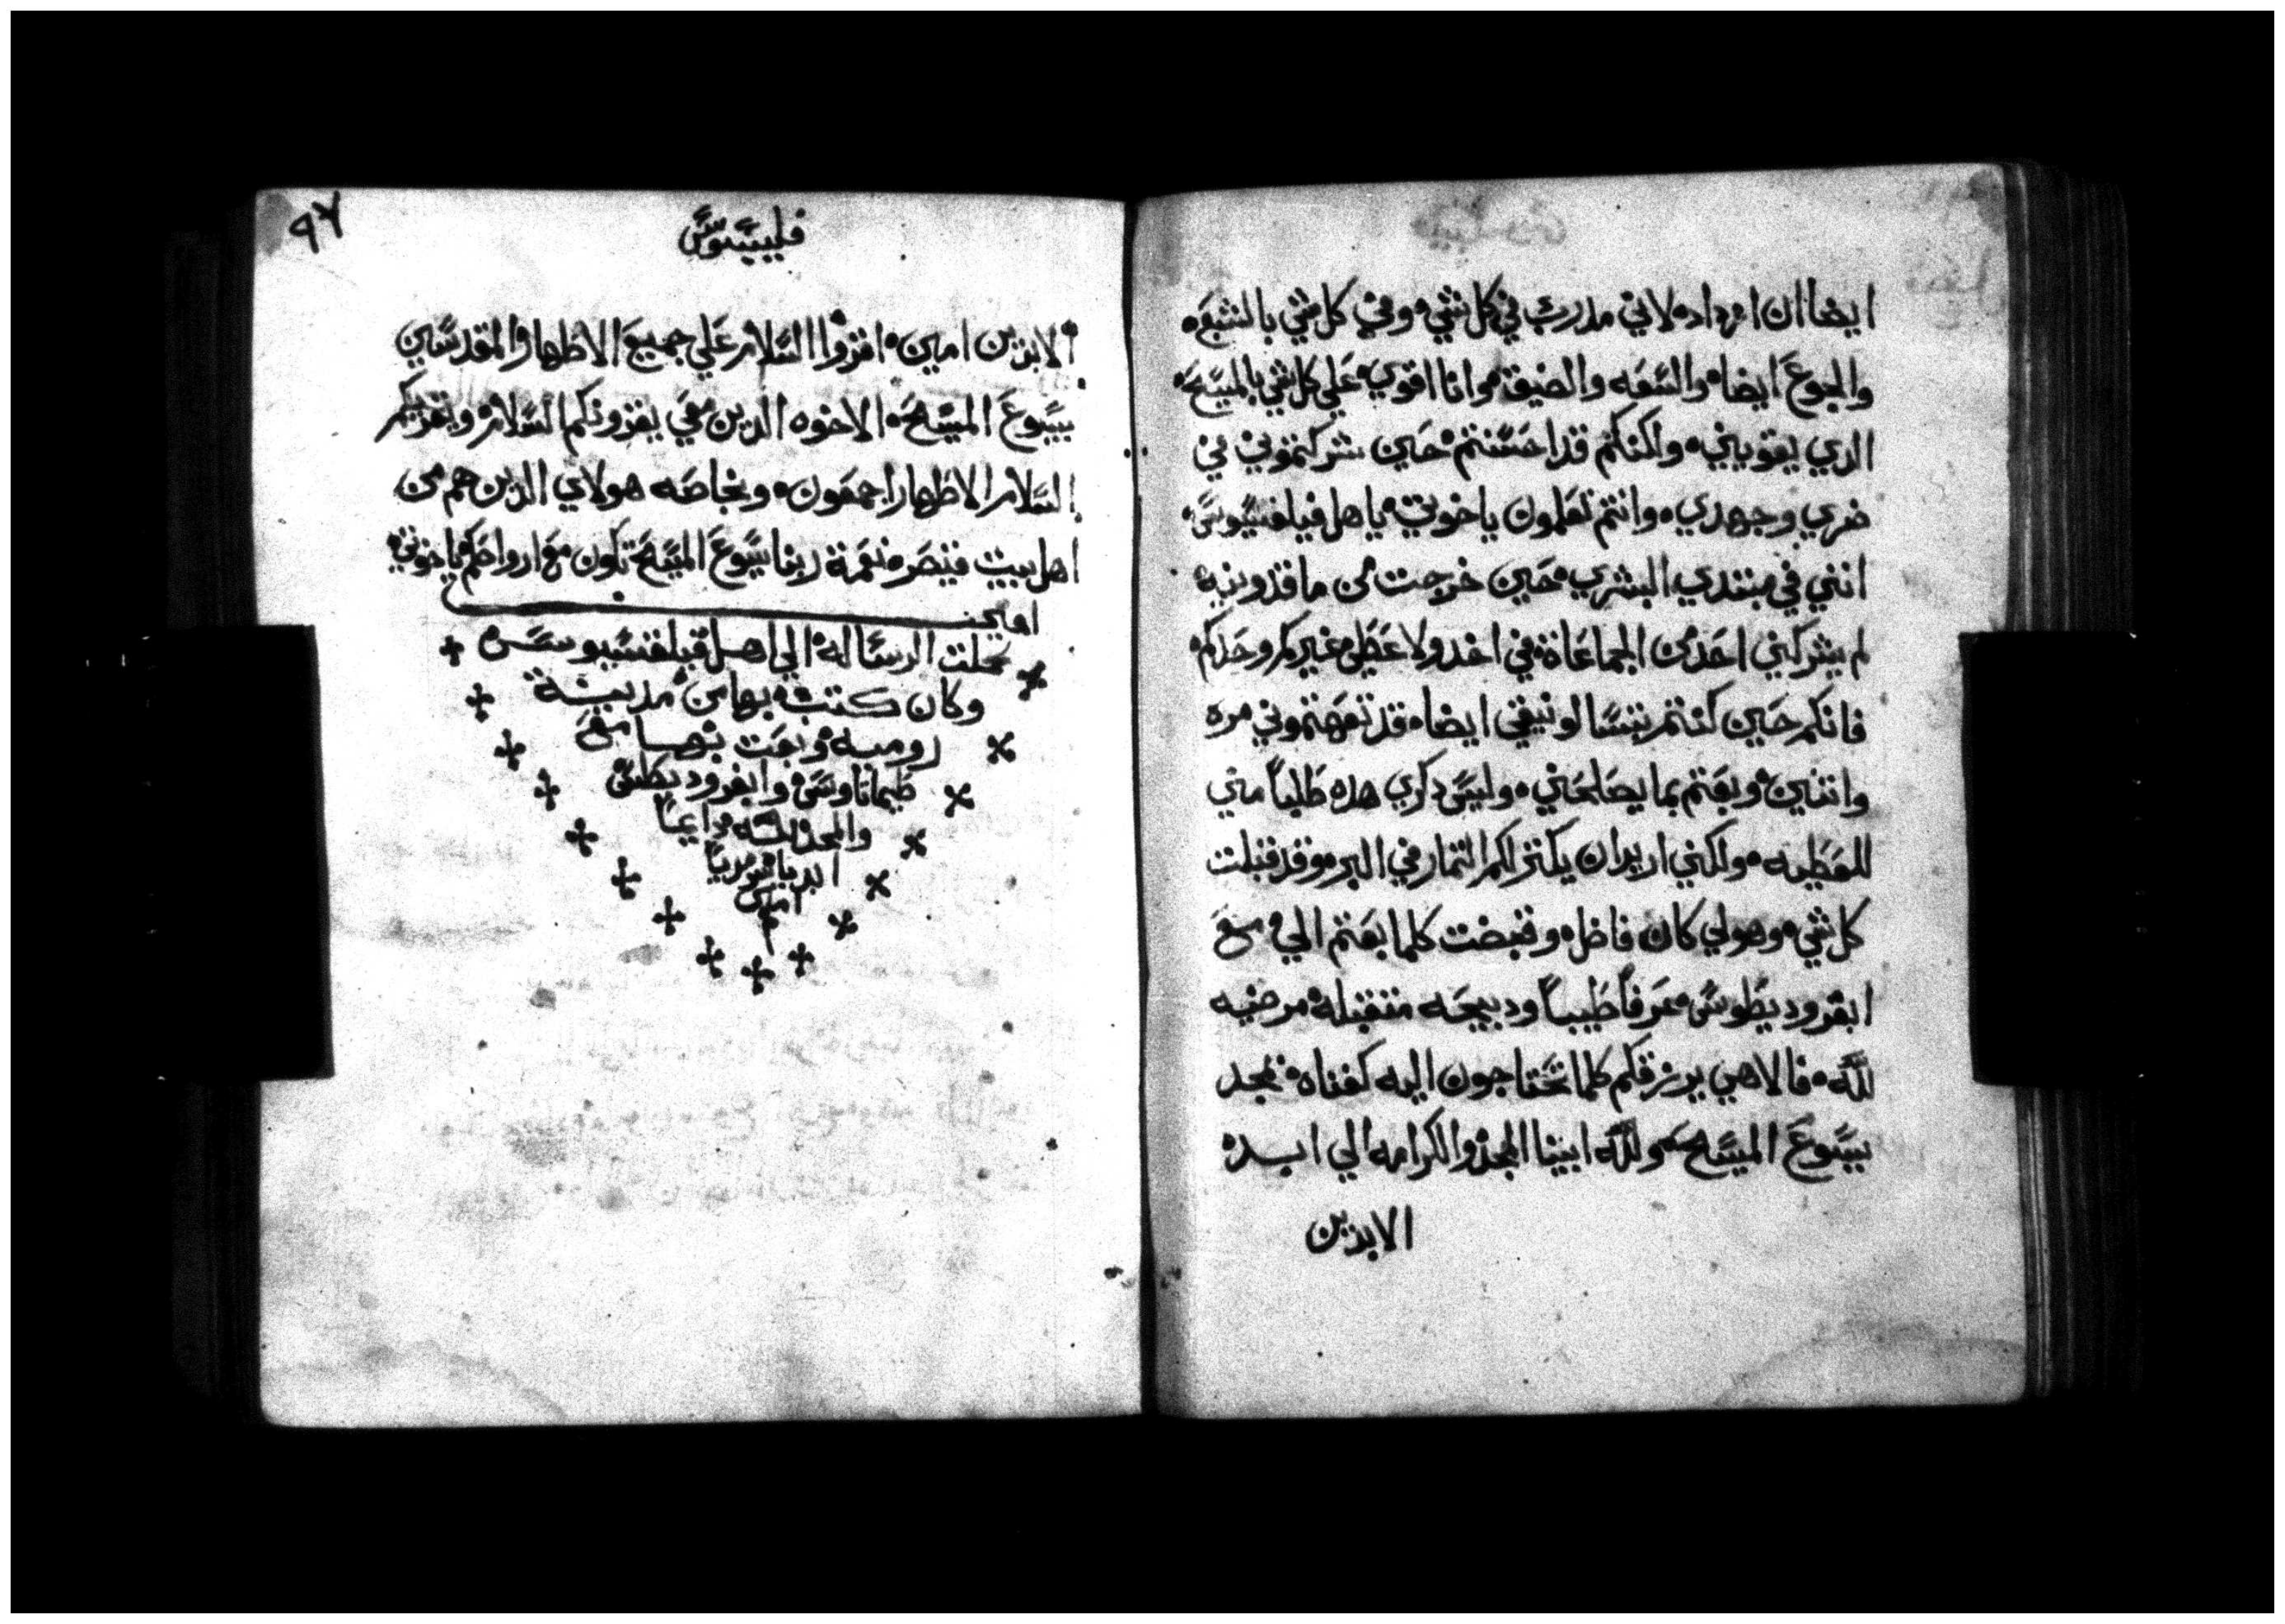 ايضا ان ازداد۰ لاني مدرب في كل شي۰ وفي كل شي بالشبع۰
والجوع ايضا۰ والسعه والضيقة۰ وانا اقوي علي كل شي بالمسيح۰
الدي يقويني۰ ولكنكم قد احسنتم حين شركتموني في
ضري وجهدي۰ وانتم تعلمون ياخوتي يا هل فيلفسيوس۰
انني في مبتدي البشري حين خرجت من ماقدونيه
لم يشركني احد من الجماعاة في اخد ولا عطي غيركم وحدكم
فانكم حين كنتم بتسالونيقي ايضا۰ قد تعهتموني مره
واتنين وبعتم بما يصلحني۰ وليس دكري هده طلباً مني
للعطيه۰ ولكني اريد ان يكتر لكم التمار في البر۰ وقد قبلت
كل شي۰ وهو لي كان فاضل۰ وقبضت كلما بعتم الي مع
ابفروديطوس عرفاً طيباً ودبيحه متقبلة مرضيه
لله۰ فالاهي يرزقكم كلما تحتاجون اليه كفناه بمجد
يسوع المسيح۰ ولله ابينا المجد والكرامه الي ابد
الابدين
٩٧
فليبيوس
الابدين امين۰ اقروا السلام علي جميع الاطهار المقدسين
بيسوع المسيح۰ الاخوه الدين معي يقرونكم السلام ويقريكم
السلام الاطهار اجمعون۰ وبخاصه هولاي الدين هم من
اهل بيت قيصر۰ نعمة ربنا يسوع المسيح تكون مع ارواحكم ياخوتي
امين
كملت الرسالة الي اهل فيلفسيوس
وكان كتب بها من مدينة
رومية وبعت بها مع
طيماتاوس وابفروديطس
والمجد لله دايماً
ابدياً سرمدياً
امين